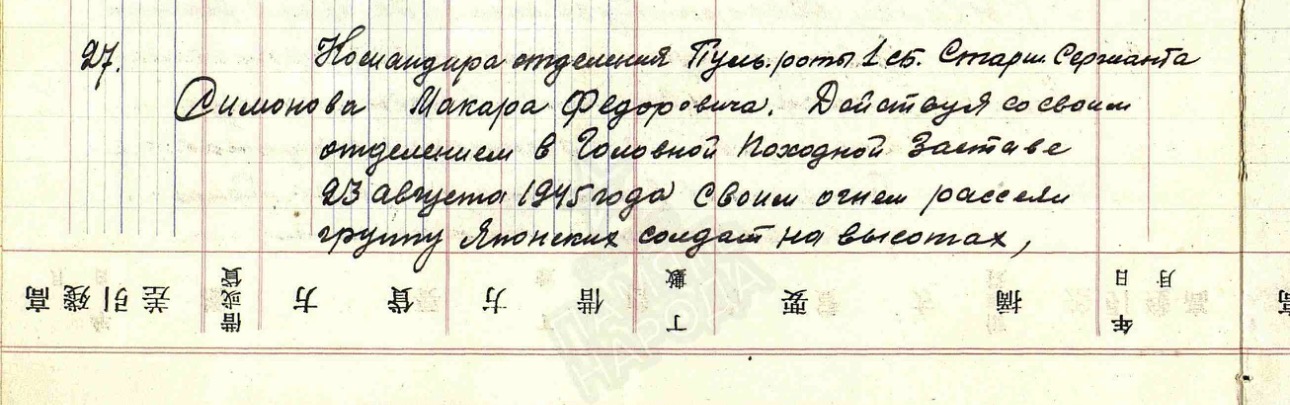 27. Командира отделения Пуль.роты 1 сб. Старш. Сержанта
Симонова Макара Федоровича. Действуя со своим
отделением в Головной Походной Заставе
23 августа 1945 года своим огнем рассеял
группу Японских солдат на высотах,
高殘引差 借或貸 方貸 方借 丁數 要摘 年月日
ПАМЯТЬ НАРОДА